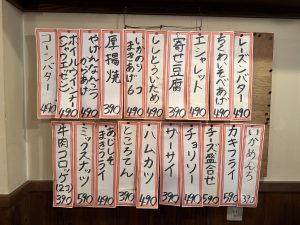 レーズンバター 490
ちくわいそべあげ 490
エシャレット 490
寄せ豆腐 390
ししとういため 490
いかのしそまきあげ 490
厚揚焼 390
やげんなんこつからあげ 490
ボイルウインナー(シャウエッセン) 490
コーンバター 490
カキフライ 590
チーズ盛合せ 590
チョリソー 490
ザーサイ 390
ハムカツ 490
ところてん 390
あじしそまきフライ 490
ミックスナッツ 590
牛肉コロッケ(2コ) 390
390